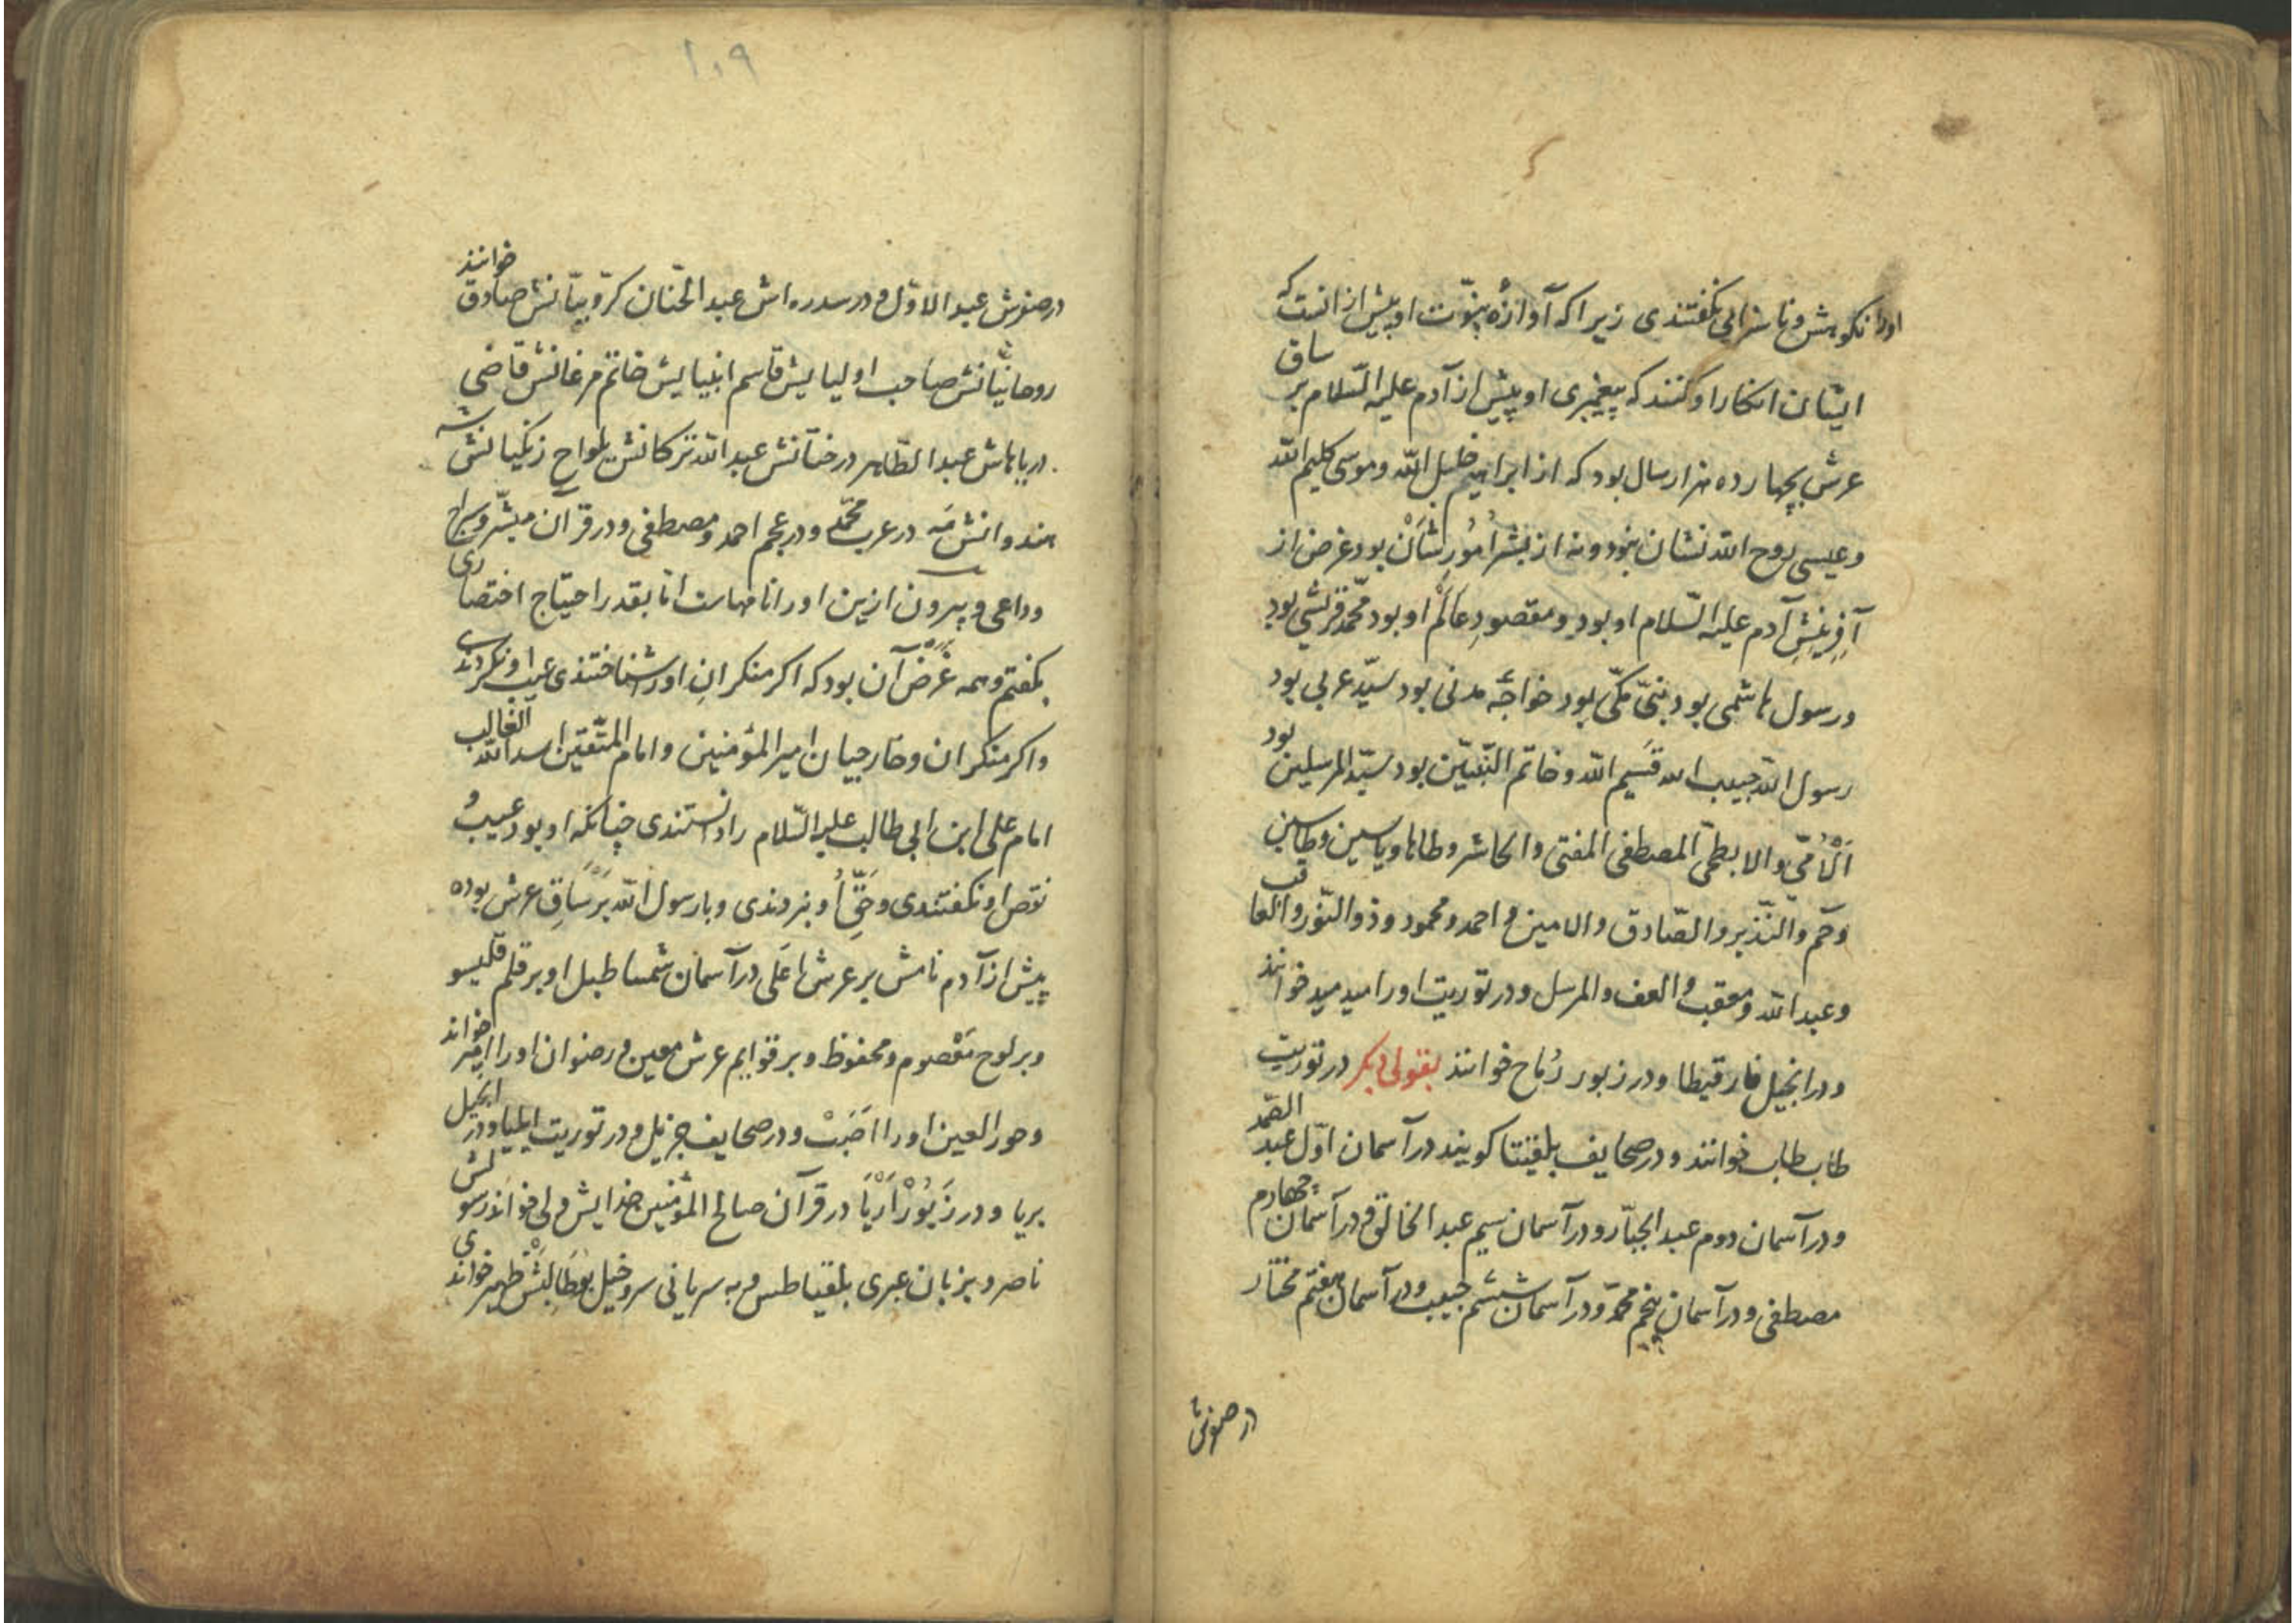 اورا نکوهش و ناسزایی نگفتندی زیرا که آوازهٔ نبوّت او پیش از انست که
ایشان انکار او کنند که پیغمبری او پیش از آدم علیه السّلام بر ساق
عرش بچهارده هزار سال بود که از ابراهیم خلیل اللّه و موسی کلیم اللّه
و عیسی روح اللّه نشان نبود و نه از بشر اُمُورِ شَانْ بود غرض از
آفرِینِشِ آدم علیه السّلام او بود و مقصودِ عالَم او بود محمّد قریشی بود
و رسول هاشمی بود نبیّ مکّی بود خواجهٔ مدنی بود سیّد عربی بود
رسول اللّه حبیب اللّه قَسِیم اللّه و خاتم النّبیّین بود سیّد المرسلین بود
اَلْاُمّی و الابطحی المصطفی المقتفی و الحاشر و طاها و یاسین و طاسین
و حم و النّذیر و الصّادق و الامین و احمد و محمود و ذو النّور و العاقب
و عبد اللّه و معقب و العف و المرسل و در توریت اورا مید مید خوانند
و در انجیل فارقیطا و در زبور رُماح خوانند بقولی دیگر در توریت
طاب طاب خوانند و در صحایف بلقیتا گویند در آسمان اوّل عبد الصّمد
و در آسمان دوم عبد الجبّار و در آسمان سیم عبد الخالق و در آسمان چهارم
مصطفی و در آسمان پنجم محمّد و در آسمان ششم حبیب و در آسمان هفتم مختار
۱۰۹
در صنوبرش عبد الاوّل و در سدره اش عبد الحنّان کرّوبیّانش صادق خوانند
روحانیّانش صاحب اولیایش قاسم انبیایش خاتم مرغانش قاضی
دریاهاش عبد الطّاهر درختانش عبد اللّه ترکانش بلواح زنگیانش شه
هندوانش مَه در عرب محمّد و در عجم احمد و مصطفی و در قرآن مبشّر و سراج
و داعی و بیرون ازین اورا نامهاست امّا بقدر احتیاج اختصاری
بگفتم و همه غَرَض آن بود که اگر منکرانِ اورا شناختندی عیب او نکردندی
و اگر منکران و خارجیان امیر المؤمنین و امام المتّقین اسد اللّه الغالب
امام علی ابن ابی طالب علیه السّلام را دانستندی چنانکه او بود عیب و
نقص او نگفتندی و حَقِّ اُو نبردندی و با رسول اللّه بَرْ سَاقِ عرش بوده
پیش از آدم نامش بر عرش اعلی در آسمان شمساطیل او بر قلم قلیسو
و بر لوح مَقْصوم و محفوظ و بر قوایم عرش معین و رضوان اورا امیر خواند
و حور العین اورا اَصَبْ و در صحایف جزیل و در توریت ایلیا و در انجیل
بریا و در زَبُورْ اَرْیَا در قرآن صالح المؤمنین خدایش ولی خواند رسولش
ناصر و بزبان عبری بلقیاطس و به سریانی سروخیل بوطَالِبَشْ ظهیر خواندی